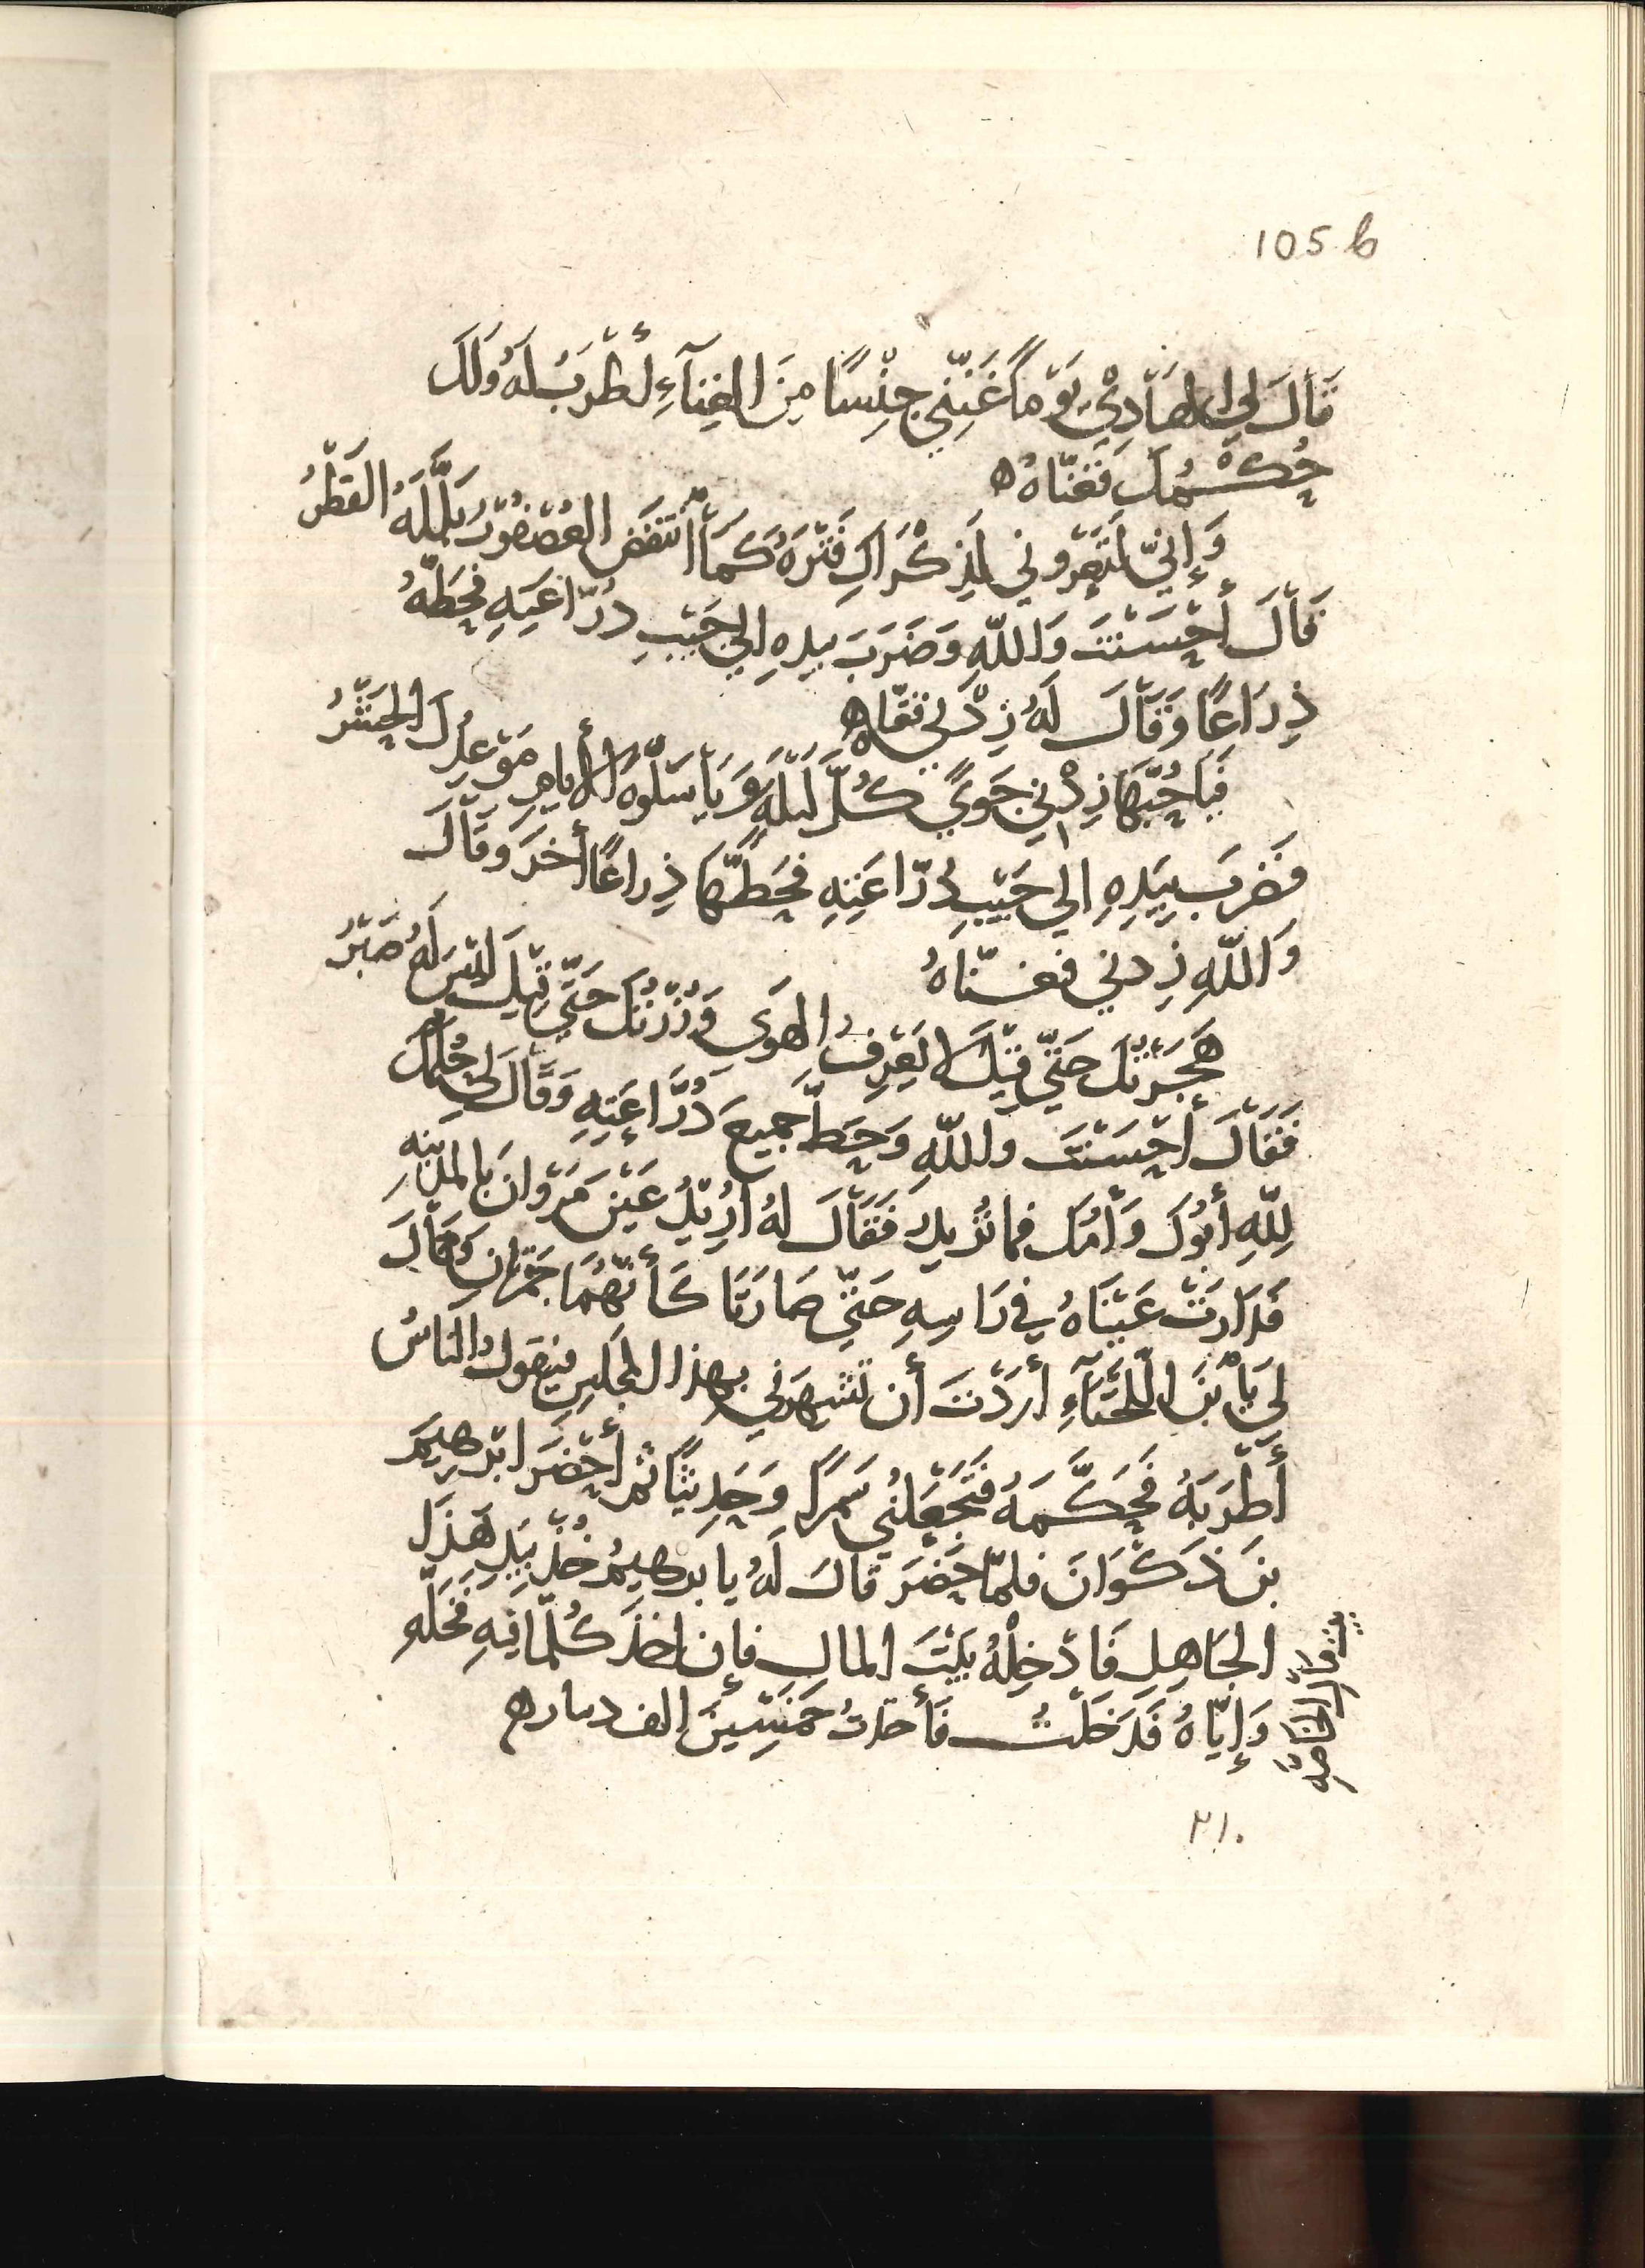 105 b
قَالَ لِي الهَادِيْ يَوْماً غَنِّنِي جِنْسًا مِنَ الغِنَآءِ أَطْرَبُ لَهُ وَلَكَ
حُكْمُكَ فَغَنَّاهُ ه
وَإِنِّي لَتَعْرُوني لِذِكْرَاكِ فَتْرَةٌ كَمَا انْتَفَضَ العُصْفُوْرُ بَلَّلَهُ القَطْرُ
قَالَ أَحْسَنْتَ وَاللّهِ وَضَرَبَ بيدهِ الي جَيْبِ دُرّاعَتِهِ فَحَطَّهُ
ذِرَاعًا وَقَالَ لَهُ زِدْنِي فغناه
فَيَا حُبَّهَا زِدْنِي جَوًي كُلَّ لَيْلَةٍ وَيَا سَلْوَةَ الأَيامِ مَوْعِدُكِ الحَشْرُ
فَضَرَبَ بِيَدِهِ الي جَيْبِ دُرّاعَتِهِ فَحَطَّهَا ذِراعًا أخَرَ وَقَالَ
وَاللّهِ زِدني فغنّاهُ
هَجَرْتُكِ حَتّي قِيْلَ لا يَعْرِفُ الهَوَى وَزُرْتُكِ حَتَّي قِيْلَ لَيْسَ لَهُ صَبْرُ
فَقَالَ أَحْسَنْتَ واللّهِ وَحَطَّ جَمِيعَ دُرَّاعَتِهِ وَقَالَ لِي حُكمُكَ
لِلّهِ أَبُوْكَ وَأُمُكَ فما تُرِيدُ فَقَالَ لهُ أُرِيْدُ عَيْنَ مَرْوانَ بِالمَدِينِهِ
فَدَارَتْ عَيْنَاهُ فِي رَاسِهِ حَتّي صَارَتَا كَأَنَّهُمَا جَمْرتَانِ وَقَالَ
لِي يَا بْنَ اللّخْنَآءِ أَرَدْتَ أَن تَشْهَرَني بهذا المجلس فيَقولُ النَاسُ
أَطْرَبَهُ فَحَكَّمَهُ فَتَجْعَلُنِي سَمَرًا وَحَدِيثًا ثم أَحْضَرَ ابْرهِيمَ
بنَ ذَكْوَانَ فلمّا حَضَرَ قالَ لَهُ يا برهِيمُ خُذْ بِيَدِ هَذَا
الجَاهِلِ فَادْخِلْهُ بَيْتَ المالِ فإن اخَذَ كُلَّمَا فِيهِ فَخَلِّهِ
وَإِيّاهُ فَدَخَلْتُ فَأَخذتُ خَمْسِينَ الف دينار ه
٢١٠